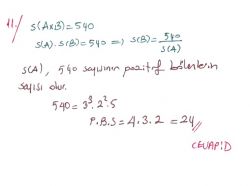 11/ s(AxB)=540
s(A).s(B)=540 ⟹ s(B)=540/s(A)
s(A), 540 sayısının pozitif bölenlerin
sayısı olur.
540=3³.2².5
P.B.S=4.3.2=24//
CEVAP:D